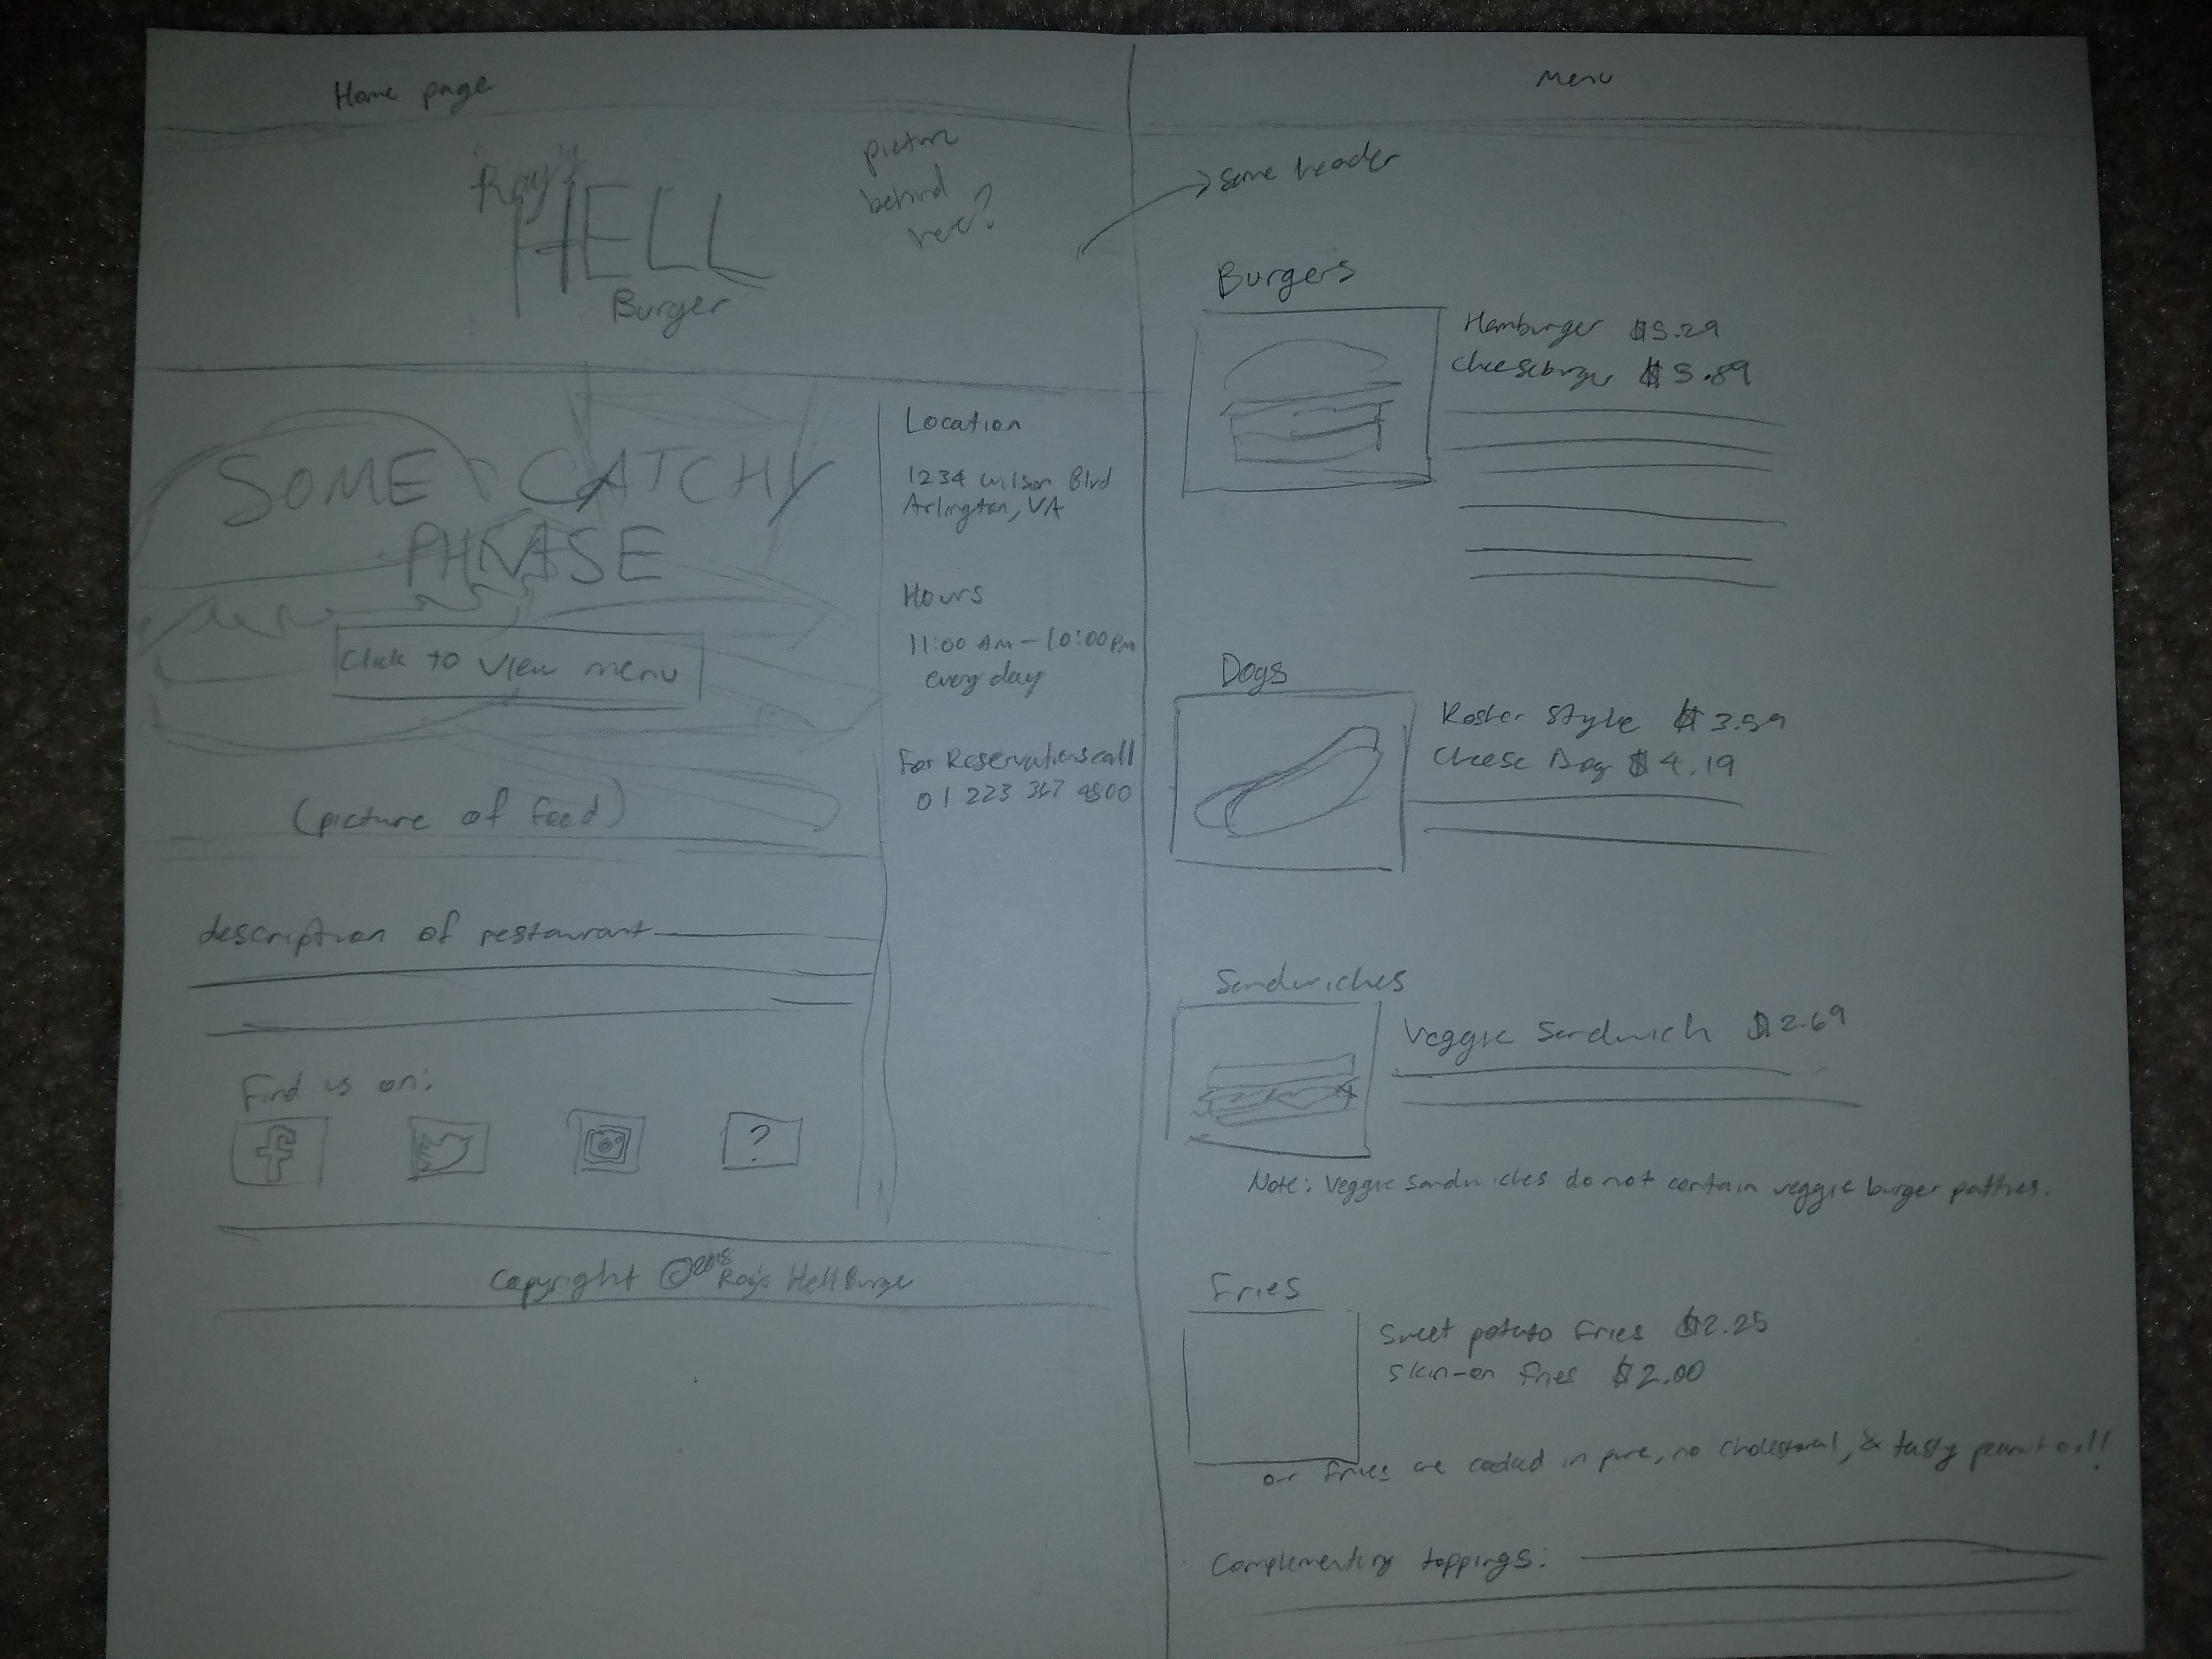 Home page
Ray's
HELL
Burger
picture
behind
here?
SOME CATCHY
PHRASE
Click to view menu
(picture of food)
Location
1234 Wilson Blvd
Arlington, VA
Hours
11:00 AM - 10:00 PM
every day
For Reservations call
01 223 367 4800
description of restaurant
Find us on:
f
?
Copyright © 2018 Ray's Hell Burger
Menu
same header
Burgers
Hamburger $5.29
Cheeseburger $5.89
Dogs
Style $3.59
Cheese Dog $4.19
Sandwiches
Veggie Sandwich $2.69
Note: Veggie sandwiches do not contain veggie burger patties.
Fries
Sweet potato Fries $2.25
Skin-on fries $2.00
our fries are cooked in pure, no cholesteral, & tasty peanut oil!
Complementary toppings: